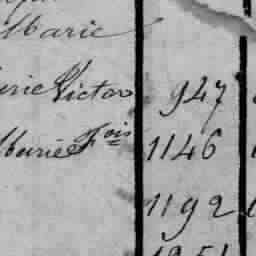 Marie
Victor 947
Marie Fois 1146
1192